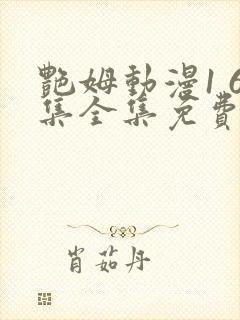 艷姆動漫1 6
集全集免費
肖茹丹